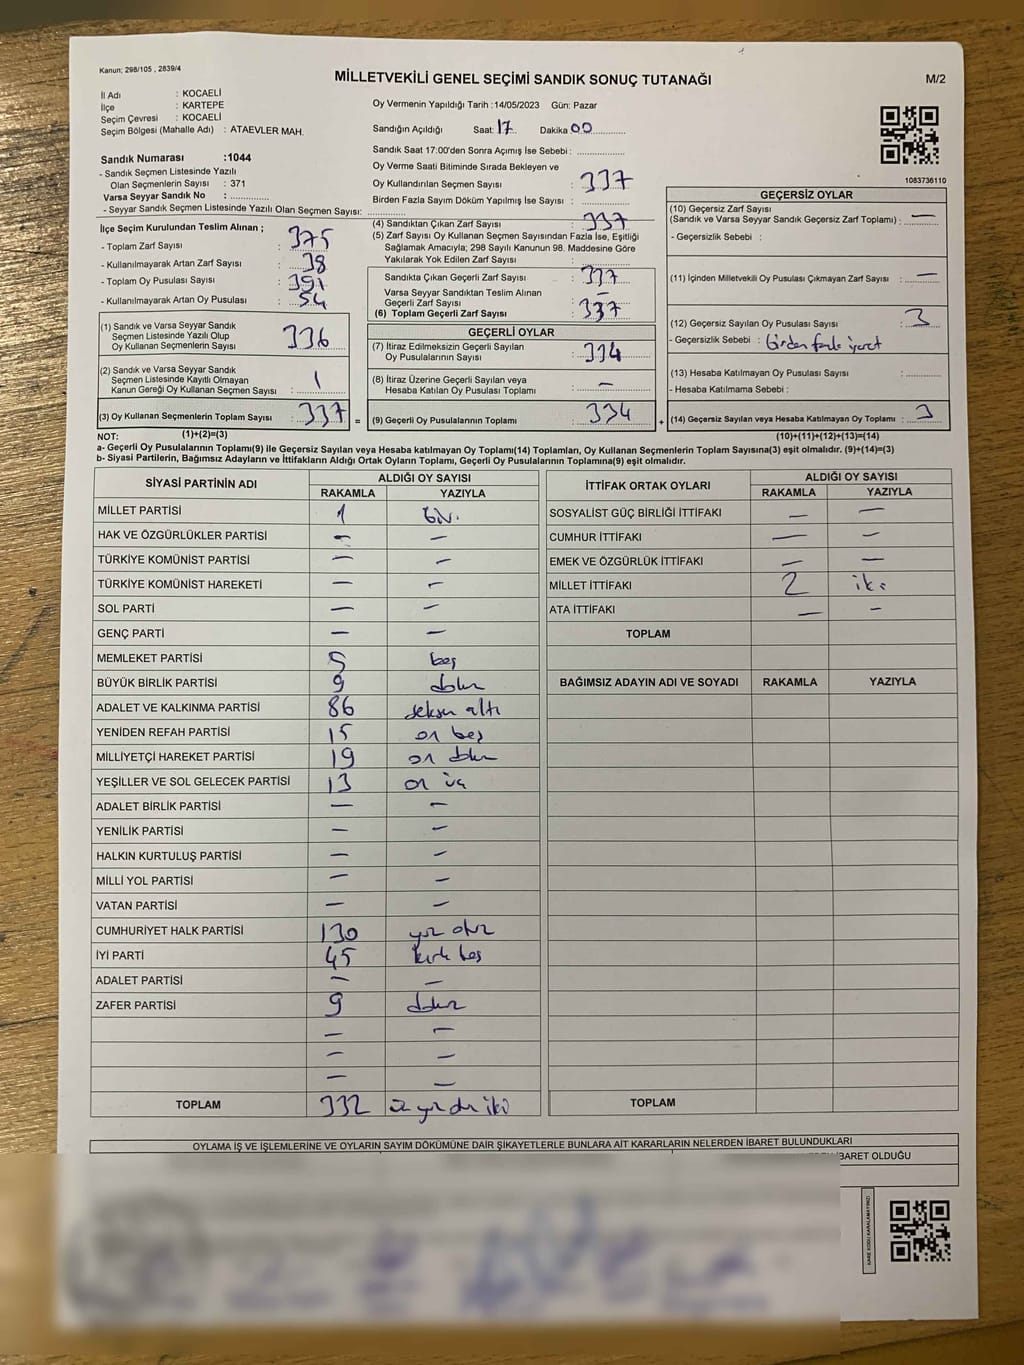 Kanun; 298/105 , 2839/4
MİLLETVEKİLİ GENEL SEÇİMİ SANDIK SONUÇ TUTANAĞI
M/2
İl Adı : KOCAELİ
İlçe : KARTEPE
Seçim Çevresi : KOCAELİ
Seçim Bölgesi (Mahalle Adı) : ATAEVLER MAH.
Sandık Numarası :1044
- Sandık Seçmen Listesinde Yazılı
Olan Seçmenlerin Sayısı : 371
Varsa Seyyar Sandık No : ..............
- Seyyar Sandık Seçmen Listesinde Yazılı Olan Seçmen Sayısı: ..............
Oy Vermenin Yapıldığı Tarih :14/05/2023 Gün: Pazar
Sandığın Açıldığı Saat: 17 Dakika 00
Sandık Saat 17:00'den Sonra Açımış İse Sebebi : ..............
Oy Verme Saati Bitiminde Sırada Bekleyen ve
Oy Kullandırılan Seçmen Sayısı : 337
Birden Fazla Sayım Döküm Yapılmış İse Sayısı : ..............
1083736110
İlçe Seçim Kurulundan Teslim Alınan ;
- Toplam Zarf Sayısı : 375
- Kullanılmayarak Artan Zarf Sayısı : 38
- Toplam Oy Pusulası Sayısı : 391
- Kullanılmayarak Artan Oy Pusulası : 54
(1) Sandık ve Varsa Seyyar Sandık
Seçmen Listesinde Yazılı Olup
Oy Kullanan Seçmenlerin Sayısı : 336
(2) Sandık ve Varsa Seyyar Sandık
Seçmen Listesinde Kayıtlı Olmayan
Kanun Gereği Oy Kullanan Seçmen Sayısı : 1
(3) Oy Kullanan Seçmenlerin Toplam Sayısı : 337 =
(4) Sandıktan Çıkan Zarf Sayısı : 337
(5) Zarf Sayısı Oy Kullanan Seçmen Sayısından Fazla İse, Eşitliği
Sağlamak Amacıyla; 298 Sayılı Kanunun 98. Maddesine Göre
Yakılarak Yok Edilen Zarf Sayısı : ..............
Sandıkta Çıkan Geçerli Zarf Sayısı : 337
Varsa Seyyar Sandıktan Teslim Alınan
Geçerli Zarf Sayısı : —
(6) Toplam Geçerli Zarf Sayısı : 337
GEÇERLİ OYLAR
(7) İtiraz Edilmeksizin Geçerli Sayılan
Oy Pusulalarının Sayısı : 334
(8) İtiraz Üzerine Geçerli Sayılan veya
Hesaba Katılan Oy Pusulaları Toplamı : —
(9) Geçerli Oy Pusulalarının Toplamı : 334 +
GEÇERSİZ OYLAR
(10) Geçersiz Zarf Sayısı
(Sandık ve Varsa Seyyar Sandık Geçersiz Zarf Toplamı) : —
- Geçersizlik Sebebi :
(11) İçinden Milletvekili Oy Pusulası Çıkmayan Zarf Sayısı : —
(12) Geçersiz Sayılan Oy Pusulası Sayısı : 3
- Geçersizlik Sebebi : birden fazla işaret
(13) Hesaba Katılmayan Oy Pusulası Sayısı : ..............
- Hesaba Katılmama Sebebi :
(14) Geçersiz Sayılan veya Hesaba Katılmayan Oy Toplamı : 3
NOT: (1)+(2)=(3)
(10)+(11)+(12)+(13)=(14)
a- Geçerli Oy Pusulalarının Toplamı(9) ile Geçersiz Sayılan veya Hesaba Katılmayan Oy Toplamı(14) Toplamları, Oy Kullanan Seçmenlerin Toplam Sayısına(3) eşit olmalıdır. (9)+(14)=(3)
b- Siyasi Partilerin, Bağımsız Adayların ve İttifakların Aldığı Ortak Oyların Toplamı, Geçerli Oy Pusulalarının Toplamına(9) eşit olmalıdır.
SİYASİ PARTİNİN ADI ALDIĞI OY SAYISI
RAKAMLA YAZIYLA
MİLLET PARTİSİ 1 bir.
HAK VE ÖZGÜRLÜKLER PARTİSİ — —
TÜRKİYE KOMÜNİST PARTİSİ — —
TÜRKİYE KOMÜNİST HAREKETİ — —
SOL PARTİ — —
GENÇ PARTİ — —
MEMLEKET PARTİSİ 5 beş
BÜYÜK BİRLİK PARTİSİ 9 dokuz
ADALET VE KALKINMA PARTİSİ 86 seksen altı
YENİDEN REFAH PARTİSİ 15 on beş
MİLLİYETÇİ HAREKET PARTİSİ 19 on dokuz
YEŞİLLER VE SOL GELECEK PARTİSİ 13 on üç
ADALET BİRLİK PARTİSİ — —
YENİLİK PARTİSİ — —
HALKIN KURTULUŞ PARTİSİ — —
MİLLİ YOL PARTİSİ — —
VATAN PARTİSİ — —
CUMHURİYET HALK PARTİSİ 130 yüz otuz
İYİ PARTİ 45 kırk beş
ADALET PARTİSİ — —
ZAFER PARTİSİ 9 dokuz
— —
— —
— —
TOPLAM 332 üç yüz otuz iki
İTTİFAK ORTAK OYLARI ALDIĞI OY SAYISI
RAKAMLA YAZIYLA
SOSYALİST GÜÇ BİRLİĞİ İTTİFAKI — —
CUMHUR İTTİFAKI — —
EMEK VE ÖZGÜRLÜK İTTİFAKI — —
MİLLET İTTİFAKI 2 iki
ATA İTTİFAKI — —
TOPLAM
BAĞIMSIZ ADAYIN ADI VE SOYADI RAKAMLA YAZIYLA
TOPLAM
OYLAMA İŞ VE İŞLEMLERİNE VE OYLARIN SAYIM DÖKÜMÜNE DAİR ŞİKAYETLERLE BUNLARA AİT KARARLARIN NELERDEN İBARET BULUNDUKLARI
İBARET OLDUĞU
KARE KODU KARALAMAYINIZ!